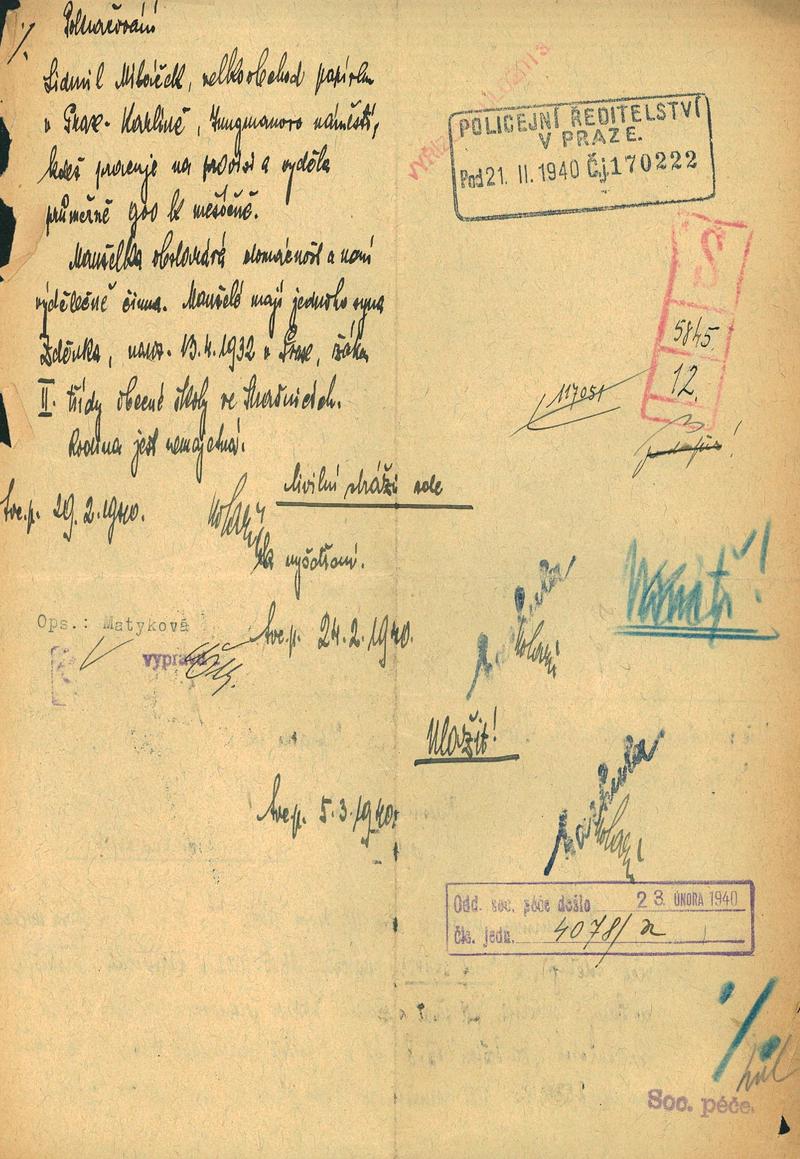 Pokračování
Lidmil Mlbáček, velkoobchod papírem
v Praze-Karlíně, Jungmanovo náměstí,
kdež pracuje na provisi a vydělá
průměrně 900 K měsíčně.
Manželka obstarává domácnost a není
výdělečně činna. Manželé mají jednoho syna
Zdeňka, naroz. 13.4.1932 v Praze, žáka
II. třídy obecné školy ve Strašnicích.
Rodina jest nemajetná.
29.2.1940.
Civilní stráži zde
k vyšetření.
24.2.1940.
Ops.: Matyková
Uložit!
5.3.1940
POLICEJNÍ ŘEDITELSTVÍ
V PRAZE.
Pod 21. II. 1940 Čj. 170222
S
5845
12.
117051
Odd. soc. péče došlo 23. ÚNORA 1940
Čís. jedn. 4078/
Soc. péče.